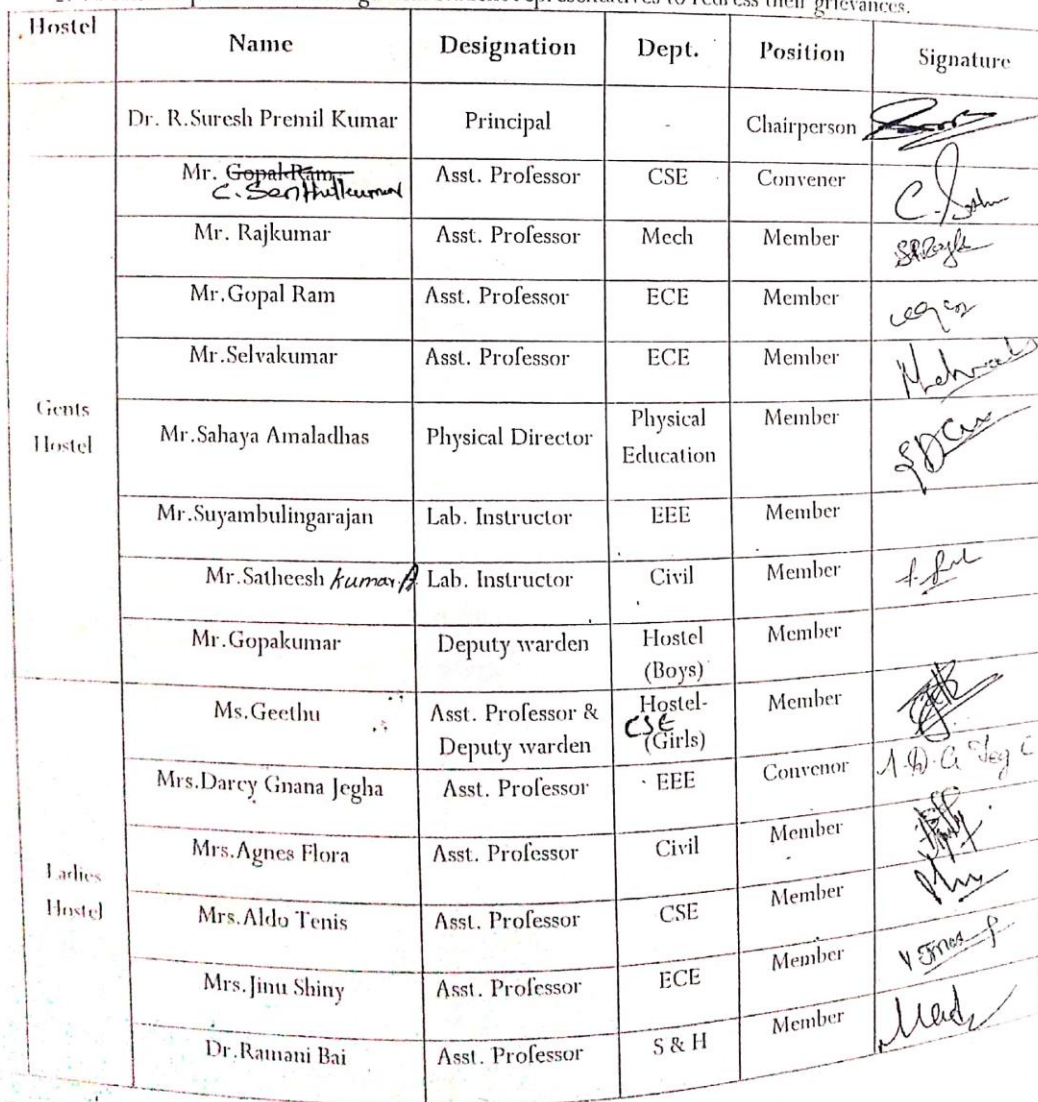 representatives to redress their grievances.
Hostel Name Designation Dept. Position Signature
Dr. R.Suresh Premil Kumar Principal - Chairperson
Mr. Gopal Ram Asst. Professor CSE Convener
C. Senthilkumar
Mr. Rajkumar Asst. Professor Mech Member
Mr.Gopal Ram Asst. Professor ECE Member
Mr.Selvakumar Asst. Professor ECE Member
Gents
Hostel
Mr.Sahaya Amaladhas Physical Director Physical Member
Education
Mr.Suyambulingarajan Lab. Instructor EEE Member
Mr.Satheesh kumar.A Lab. Instructor Civil Member
Mr.Gopakumar Deputy warden Hostel Member
(Boys)
Ms.Geethu Asst. Professor & Hostel- Member
Deputy warden CSE (Girls)
Mrs.Darcy Gnana Jegha Asst. Professor EEE Convenor
Mrs.Agnes Flora Asst. Professor Civil Member
Ladies
Hostel
Mrs.Aldo Tenis Asst. Professor CSE Member
Mrs.Jinu Shiny Asst. Professor ECE Member
Dr.Ramani Bai Asst. Professor S & H Member